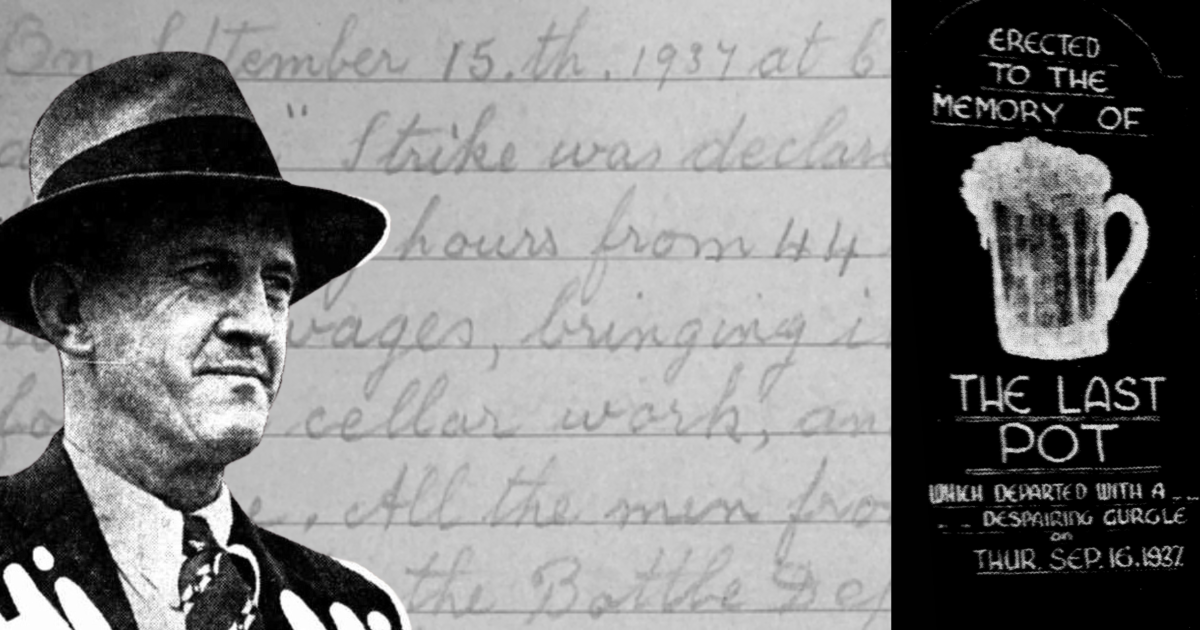 On September 15.th. 1937 at 6
" Strike was declare
hours from 44
wages, bringing i
cellar work, an
. All the men fro
the Bottle Dep
ERECTED
TO THE
MEMORY OF
THE LAST
POT
WHICH DEPARTED WITH A _ _
_ _ DESPAIRING GURGLE
on
THUR. SEP. 16. 1937.